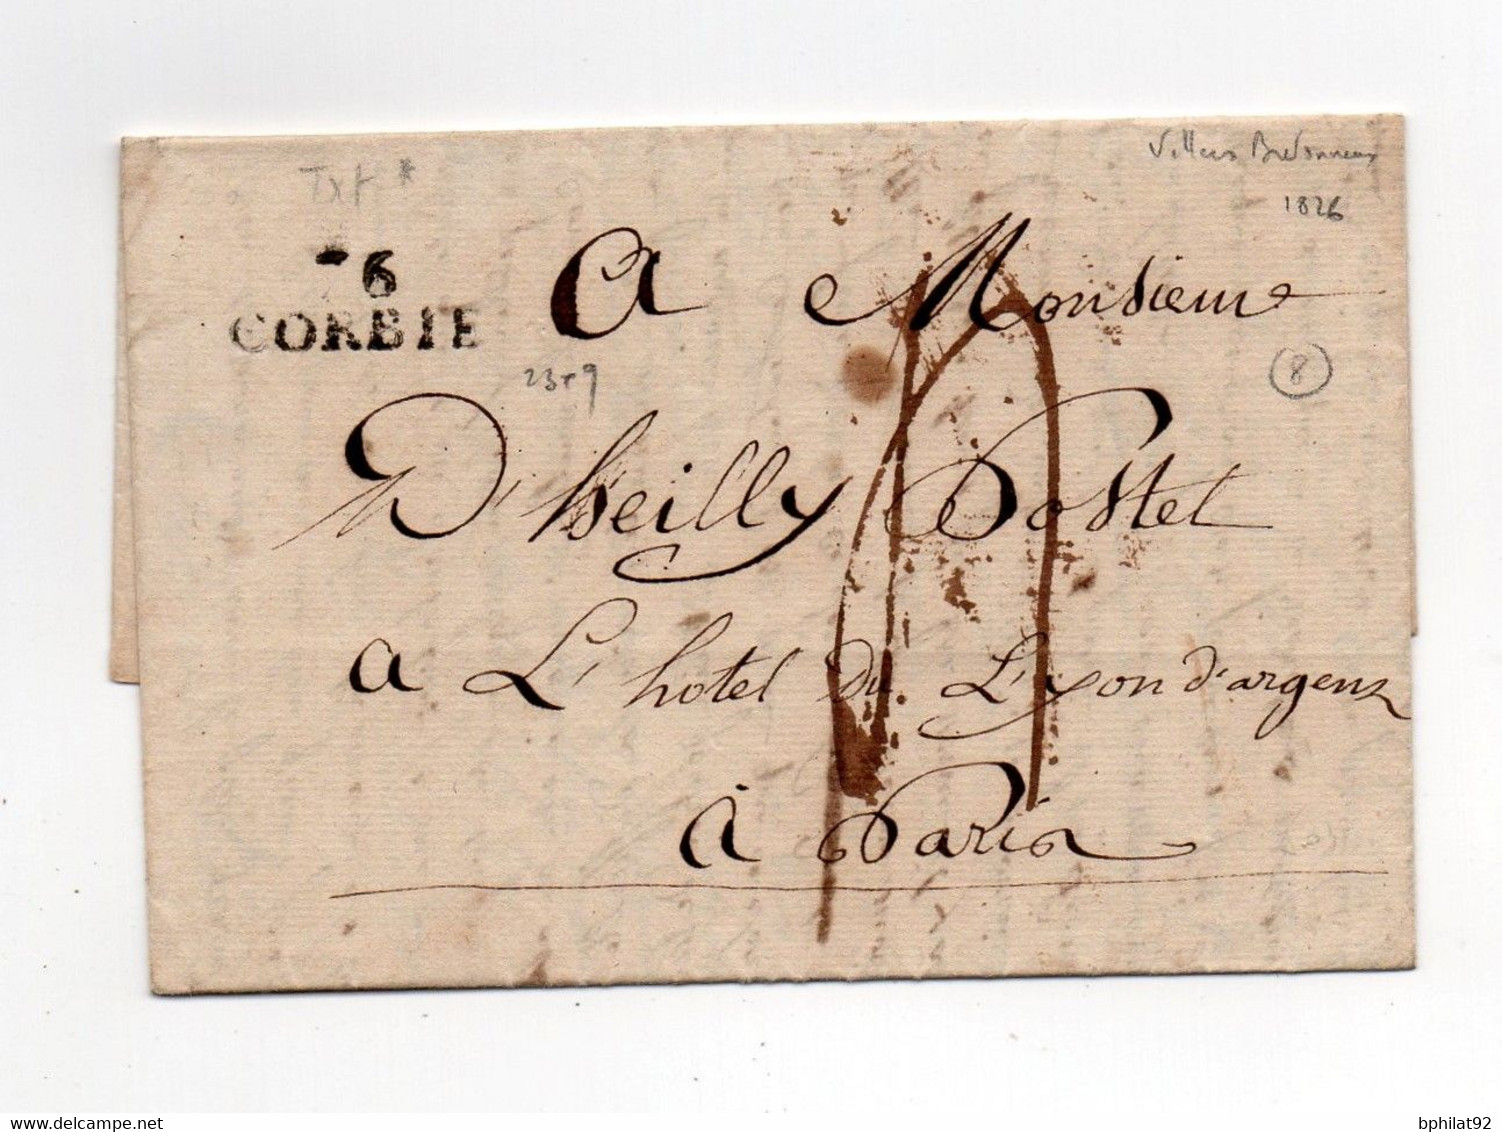 Villers Bretonneux
1826
Txt *
76
CORBIE
A Monsieur
23 + 9
8
D'heilly Postel
a L'hotel du Lyon d'argent
à Paris
delcampe.net
bphilat92